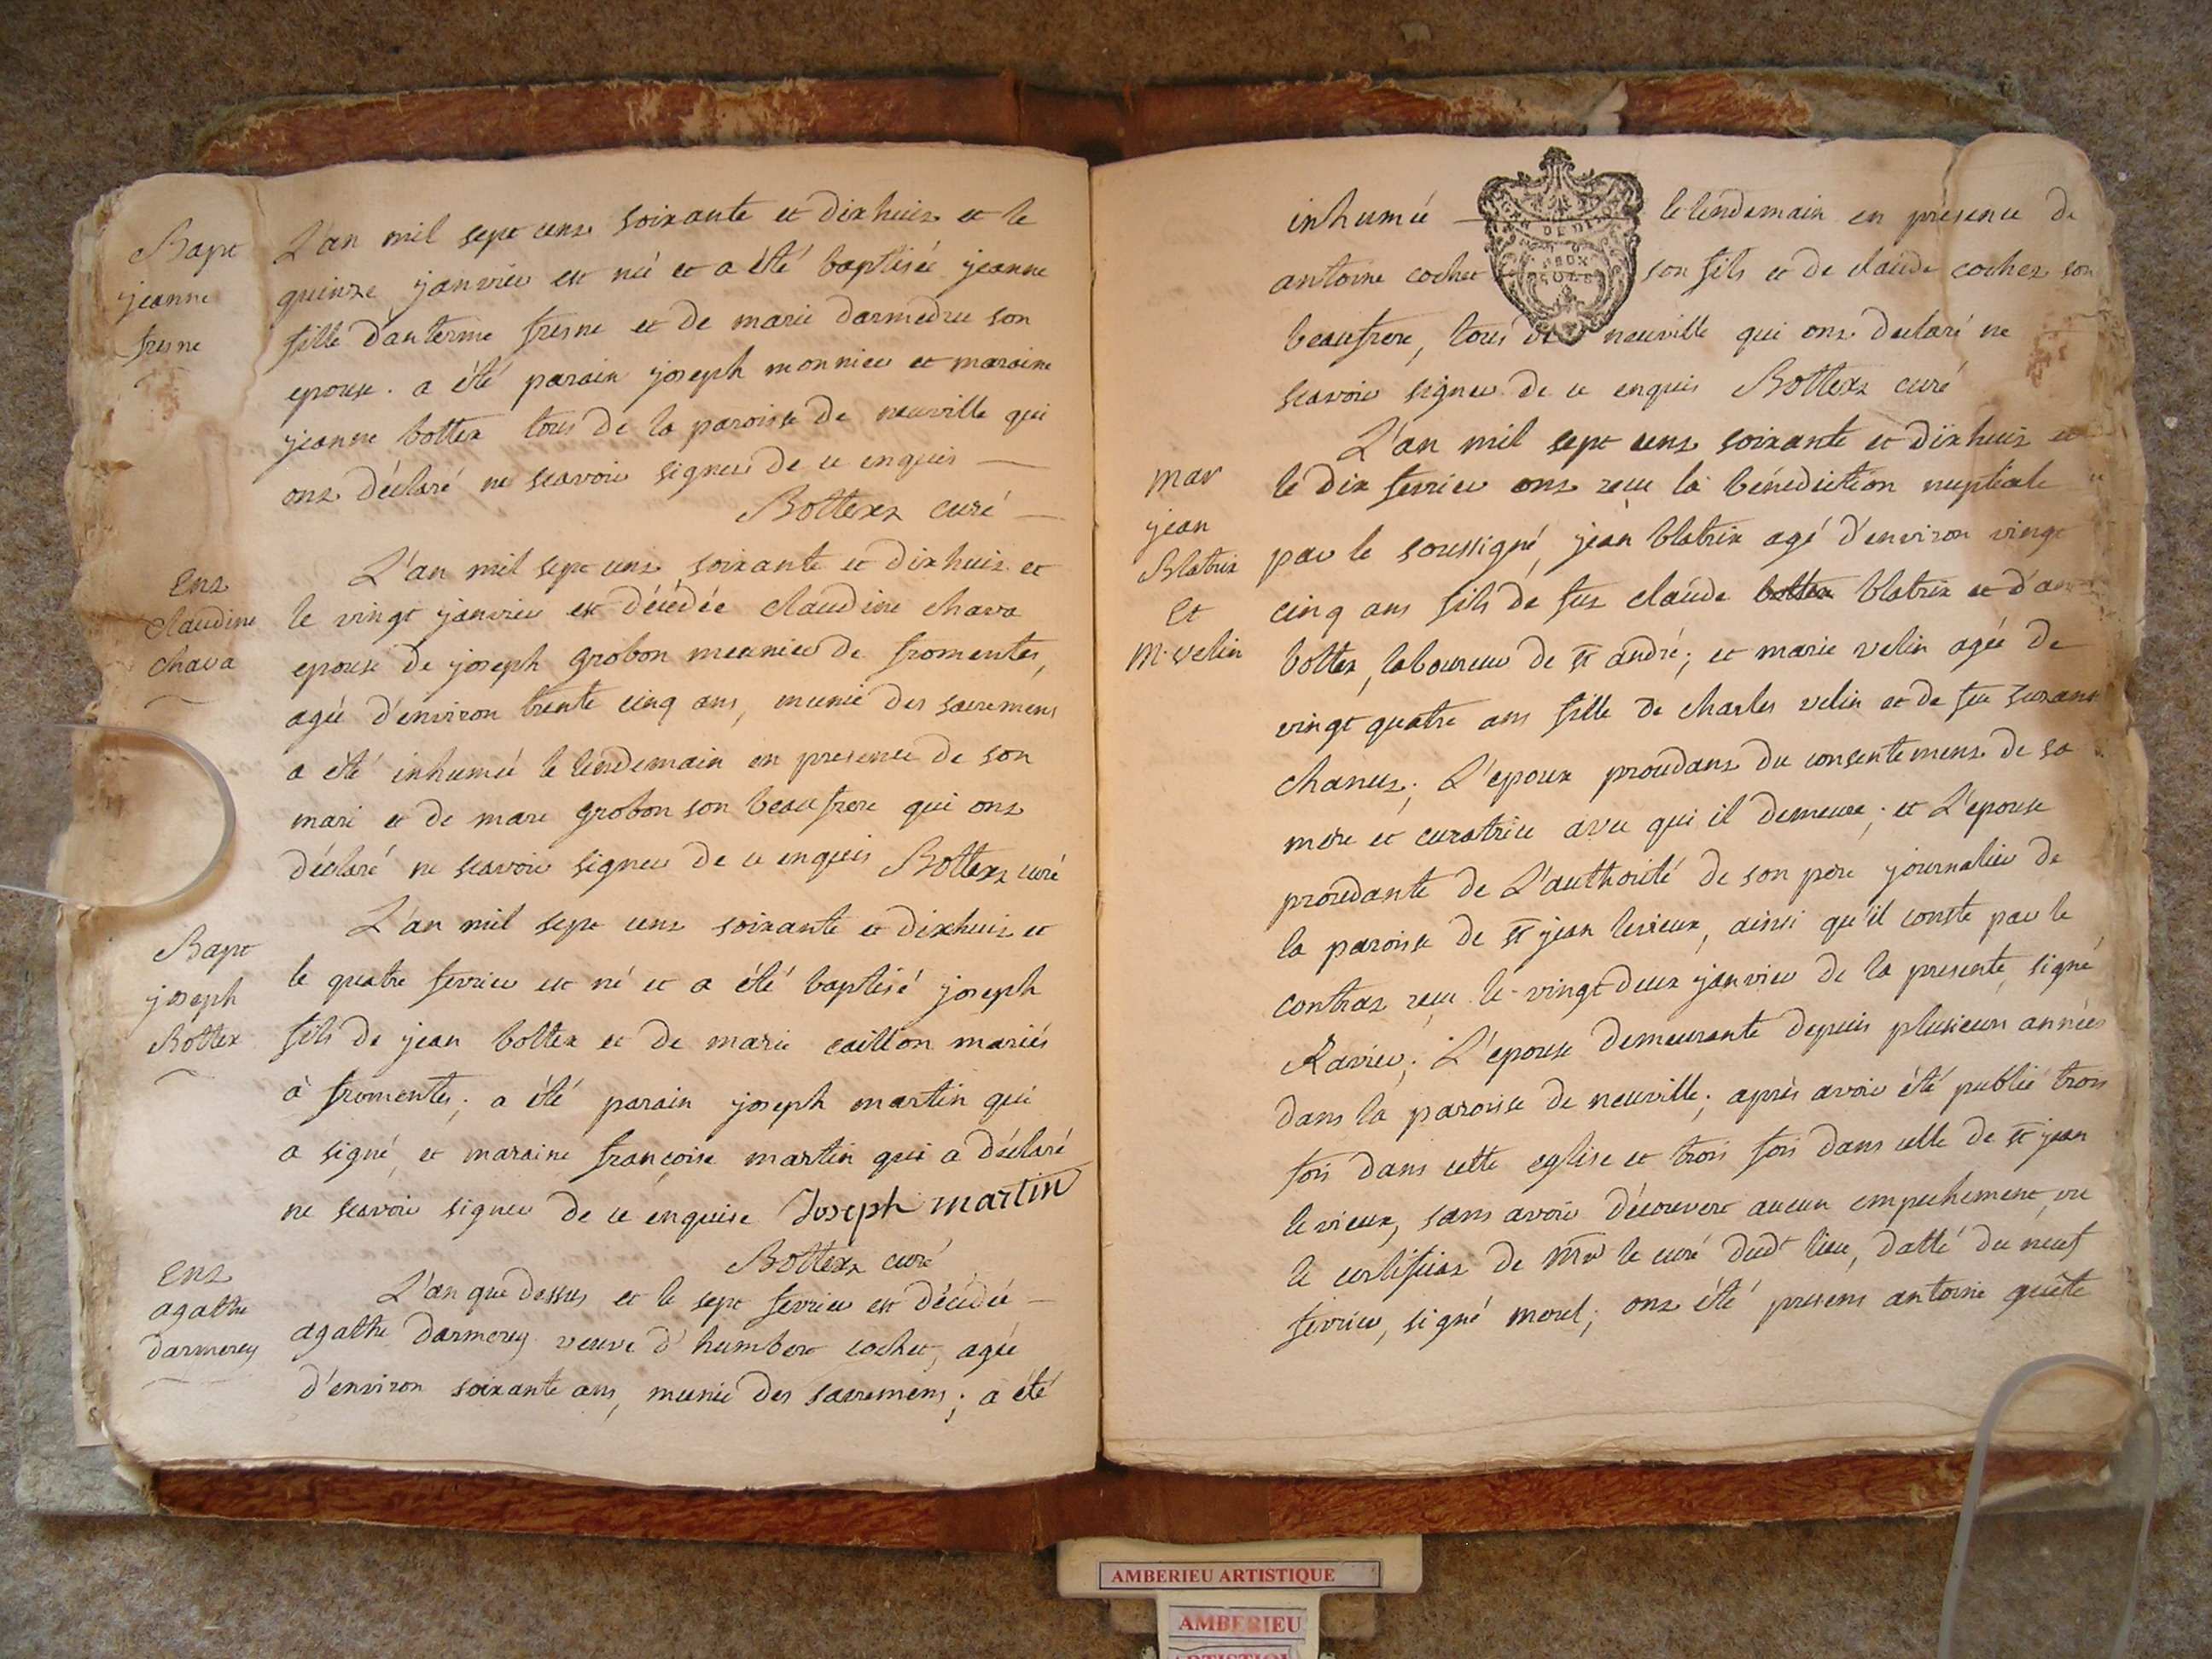 Bapt
jeanne
fresne
L'an mil sept cens soixante et dixhuit et le
quinze janvier est née et a été baptisée jeanne
fille d'anterme fresne et de marie darmedru son
epouse. a été parain joseph monnier et maraine
jeanne bottex tous de la paroisse de neuville qui
ont déclaré ne scavoir signer de ce enquis —
Bottex curé —
Ent
Claudine
Chava
L'an mil sept cens soixante et dixhuit et
le vingt janvier est décédée claudine chava
epouse de joseph grobon meunier de fromentes,
agée d'environ trente cinq ans, munie des sacremens
a été inhumée le lendemain en presence de son
mari et de marc grobon son beaufrere qui ont
déclaré ne scavoir signer de ce enquis Bottex curé
Bapt
joseph
Bottex
L'an mil sept cens soixante et dixhuit et
le quatre fevrier est né et a été baptisé joseph
fils de jean bottex et de marie caillon mariés
à fromentes; a été parain joseph martin qui
a signé, et maraine françoise martin qui a déclaré
ne scavoir signer de ce enquise Joseph martin
Bottex curé
Ent
agathe
darmerey
L'an que dessus et le sept fevrier est décédée —
agathe darmerey veuve d'humbert cochet, agée
d'environ soixante ans, munie des sacremens; a été
inhumée — le lendemain en presence de
antoine cochet son fils et de claude cochet son
beaufrere, tous de neuville qui ont declaré ne
scavoir signer de ce enquis Bottex curé
mar
jean
Blatrix
et
m. velin
L'an mil sept cens soixante et dixhuit et
le dix fevrier ont recu la bénédiction nuptiale
par le soussigné, jean blatrix agé d'environ vingt
cinq ans fils de fut claude bottex blatrix et d'
bottex, laboureur de st andré; et marie velin agée de
vingt quatre ans fille de charles velin et de feu
chanut; L'epoux procedant du consentement de sa
mere et curatrice avec qui il demeure; et L'epouse
procedante de L'authorité de son pere journalier de
la paroisse de st jean levieux, ainsi qu'il conste par le
contrat recu le vingt deux janvier de la presente, signé
Ravier; L'epouse demeurante depuis plusieurs années
dans la paroisse de neuville; après avoir été publié trois
fois dans cette eglise et trois fois dans celle de st jean
levieux, sans avoir découvert aucun empechement, vu
le certificat de Mr le curé dudt lieu, datté du neuf
fevrier, signé morel; ont été presens antoine quête
AMBERIEU ARTISTIQUE
AMBERIEU
ARTISTIQUE